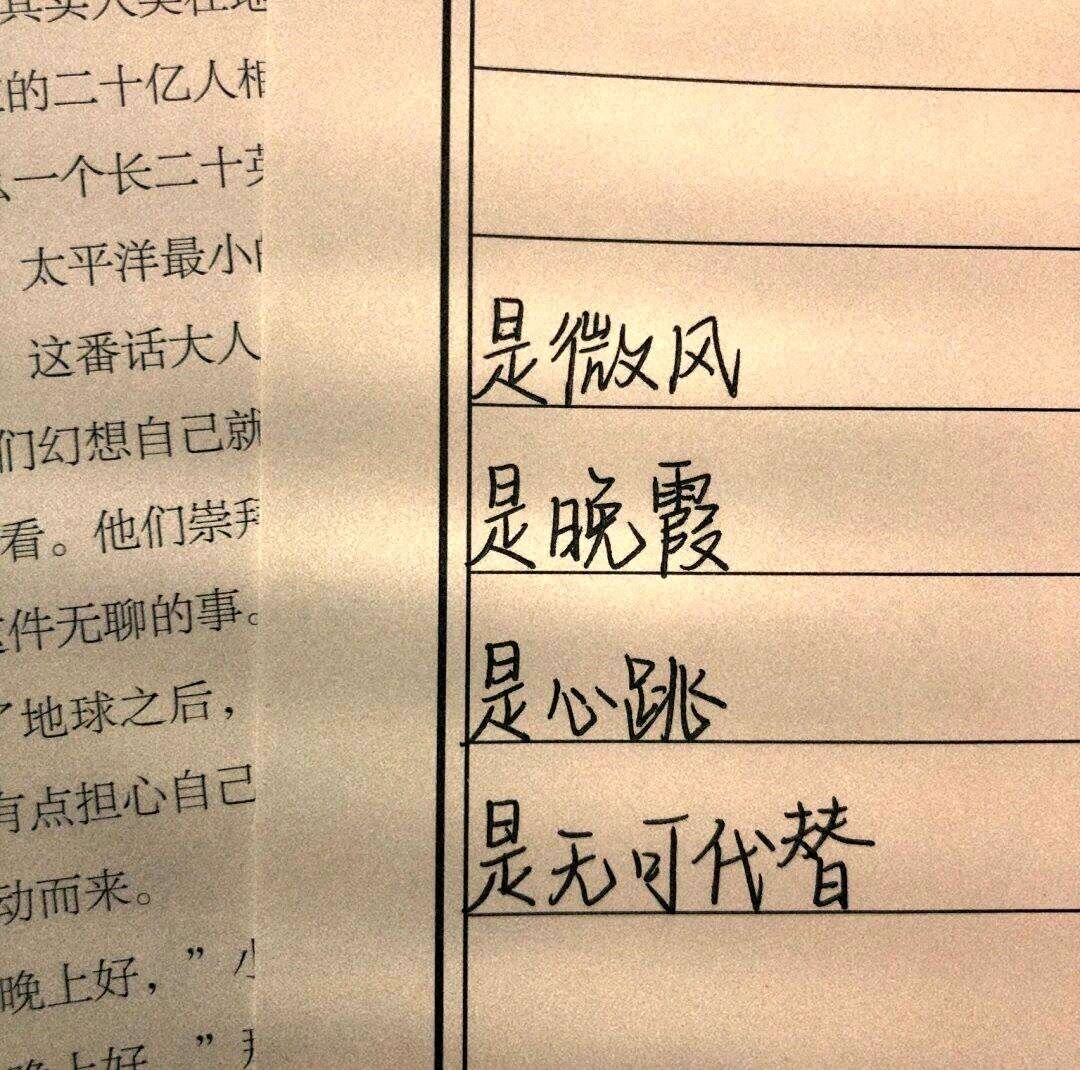 的二十亿人相
一个长二十英
太平洋最小的
这番话大人
们幻想自己就
看。他们崇拜
件无聊的事。
了地球之后，
有点担心自己
动而来。
晚上好，”小
晚上好。”
是微风
是晚霞
是心跳
是无可代替